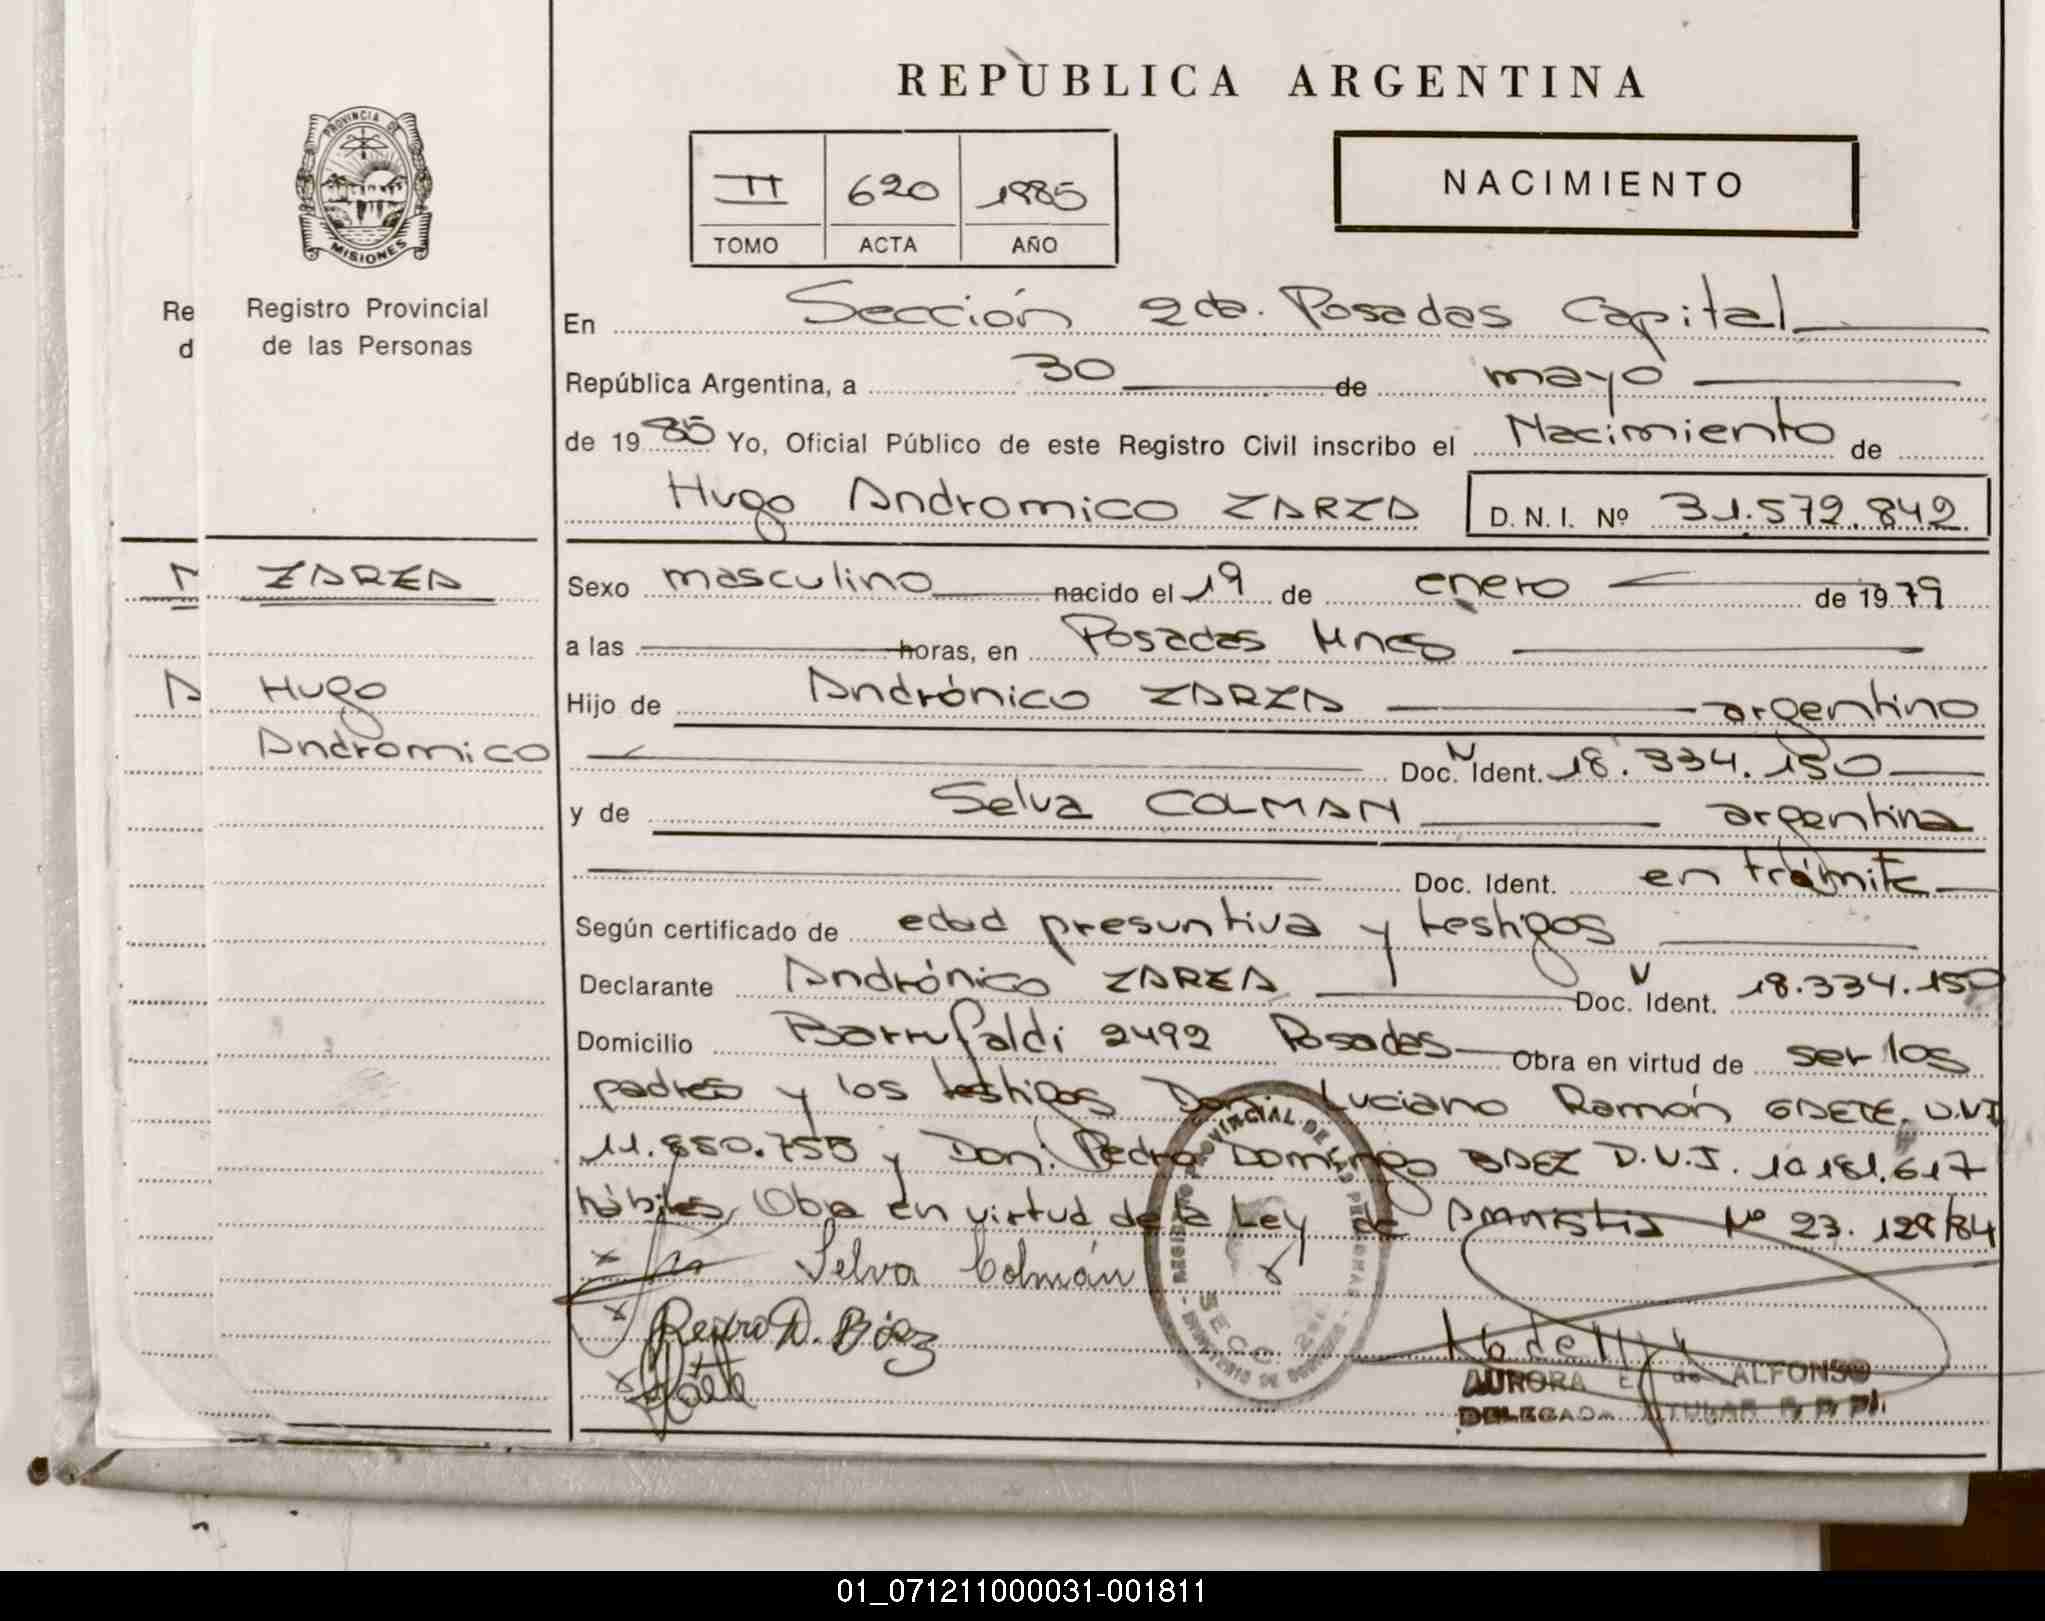 REPUBLICA ARGENTINA
PROVINCIA DE
MISIONES
II 620 1985
TOMO ACTA AÑO
NACIMIENTO
Re
d
Registro Provincial
de las Personas
En Sección 2da. Posadas Capital
República Argentina, a 30 de mayo
de 1985 Yo, Oficial Público de este Registro Civil inscribo el Nacimiento de
Hugo Andromico ZARZA D. N. I. Nº 31.579.842
ZARZA
Hugo
Andromico
Sexo masculino nacido el 19 de enero de 1979
a las horas, en Posadas Mnes
Hijo de Andrónico ZARZA argentino
Doc. Ident. 18.334.150
y de Selva COLMAN argentina
Doc. Ident. en trámite
Según certificado de edad presuntiva y testigos
Declarante Andrónico ZARZA Doc. Ident. 18.334.150
Domicilio Barrufaldi 2492 Posadas Obra en virtud de ser los
padres y los testigos Don: Luciano Ramón GAETE. D.N.I
y Don: Pedro Domingo BAEZ D.N.I. 10.181.617
hábiles, Oba en virtud de la Ley de Amnistia Nº 23.128/84
Selva Colmán
Pedro D. Báez
REGISTRO PROVINCIAL DE LAS PERSONAS
SECC. 2da
AURORA E. de ALFONSO
DELEGADA TITULAR R. P. P.
01_071211000031-001811